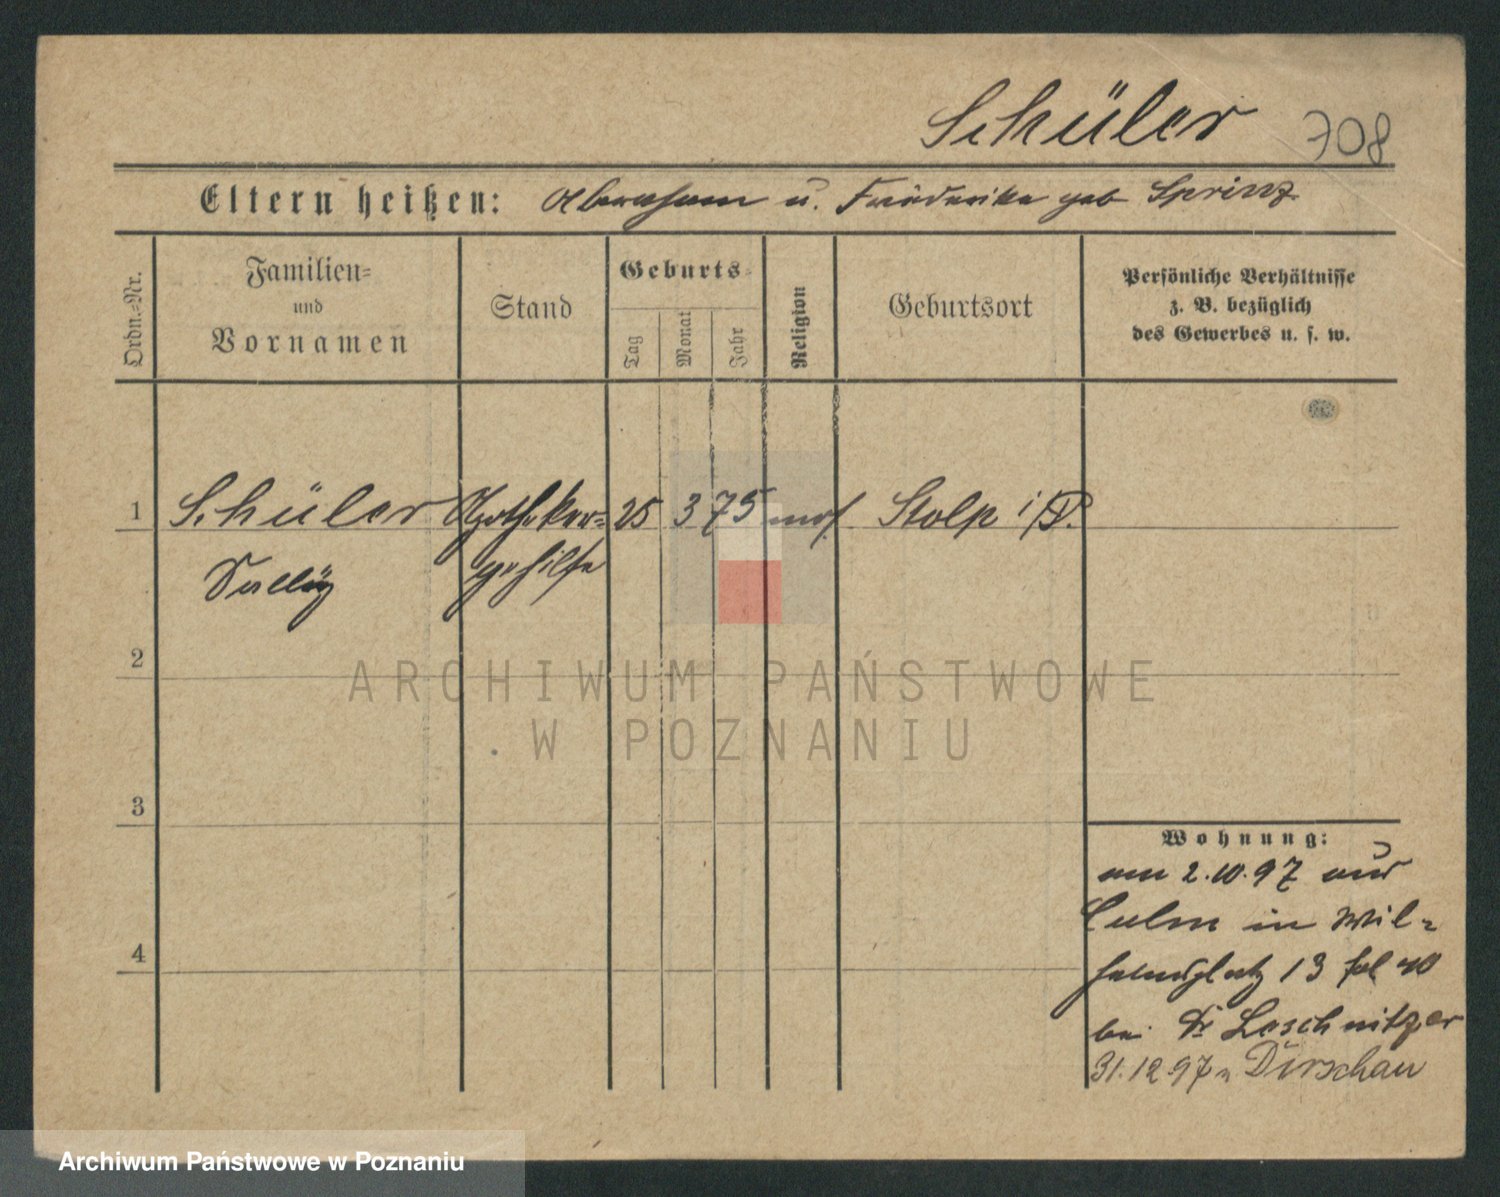 Schüler 708
Eltern heißen: Abraham u. Friederike geb Sprinz.
Ordn.-Nr.
Familien-
und
Vornamen
Stand
Geburts-
Tag
Monat
Jahr
Religion
Geburtsort
Persönliche Verhältnisse
z. B. bezüglich
des Gewerbes u. s. w.
1 Schüler Apotheker- 25 3 75 mos. Stolp i/P.
Sally gehilfe
2
ARCHIWUM PAŃSTWOWE
W POZNANIU
3
Wohnung:
am 2.10.97 aus
Culm in Wil-
helmsplatz 13
4
bei Dr Leschnitzer
31.12.97 n Dirschau
Archiwum Państwowe w Poznaniu